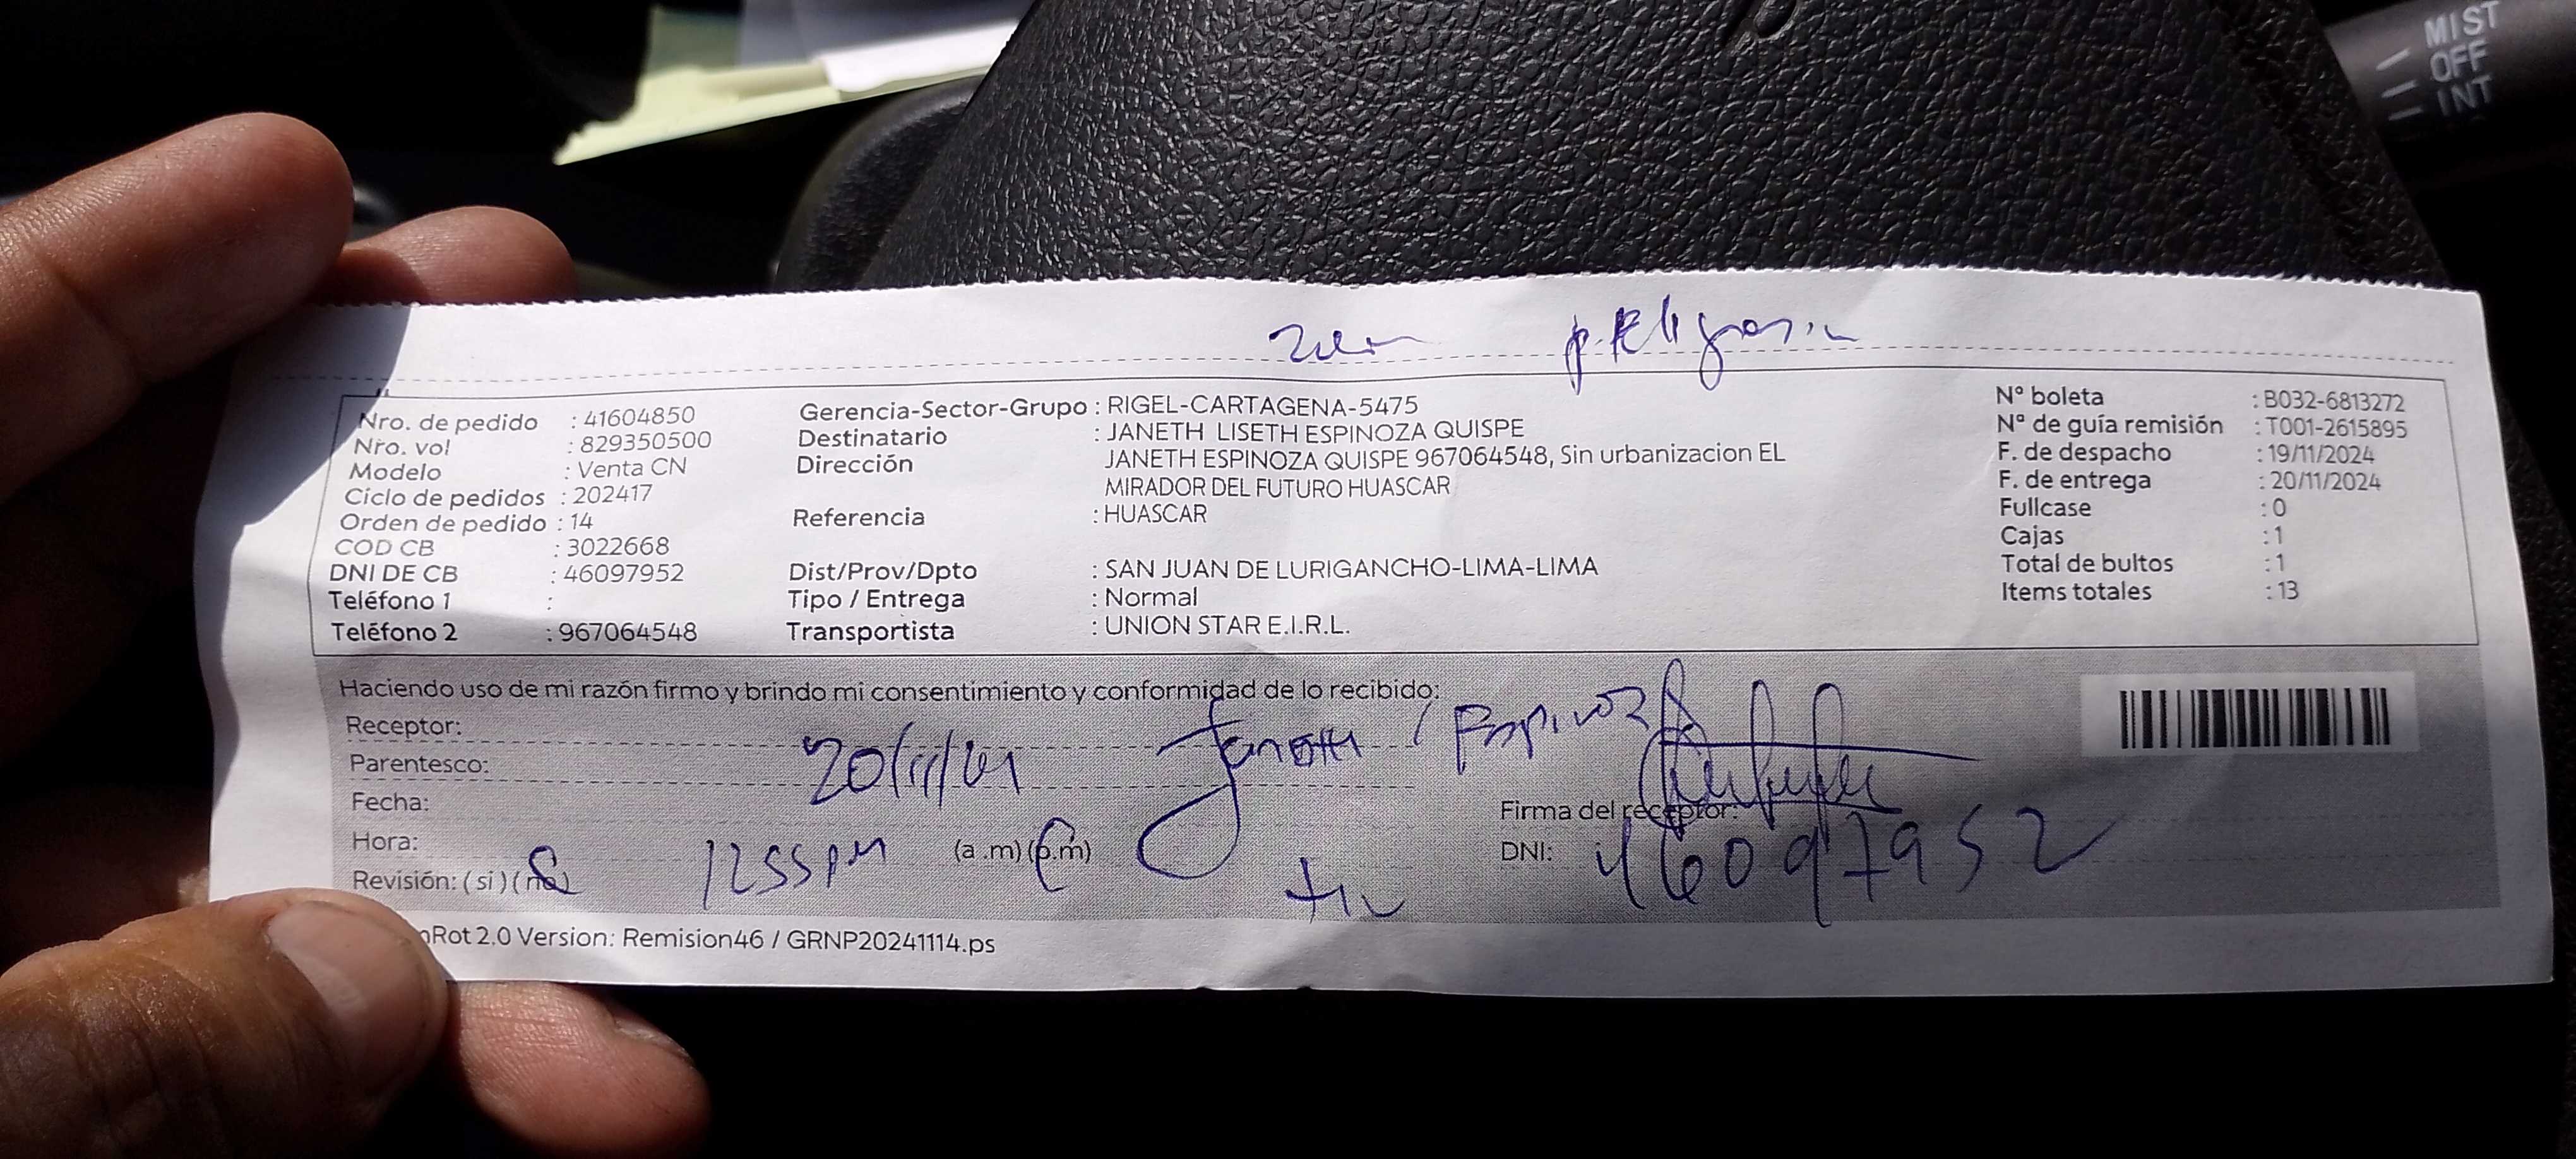 MIST
OFF
INT
peligrosa
Nro. de pedido : 41604850
Nro. vol : 829350500
Modelo : Venta CN
Ciclo de pedidos : 202417
Orden de pedido : 14
COD CB : 3022668
DNI DE CB : 46097952
Teléfono 1 :
Teléfono 2 : 967064548
Gerencia-Sector-Grupo : RIGEL-CARTAGENA-5475
Destinatario : JANETH LISETH ESPINOZA QUISPE
Dirección JANETH ESPINOZA QUISPE 967064548, Sin urbanizacion EL
MIRADOR DEL FUTURO HUASCAR
Referencia : HUASCAR
Dist/Prov/Dpto : SAN JUAN DE LURIGANCHO-LIMA-LIMA
Tipo / Entrega : Normal
Transportista : UNION STAR E.I.R.L.
Nº boleta : B032-6813272
Nº de guía remisión : T001-2615895
F. de despacho : 19/11/2024
F. de entrega : 20/11/2024
Fullcase : 0
Cajas : 1
Total de bultos : 1
Items totales : 13
Haciendo uso de mi razón firmo y brindo mi consentimiento y conformidad de lo recibido:
Receptor: Janeth Espinoza
Parentesco:
Fecha: 20/11/24
Hora: 1255 PM (a.m) (p.m)
Revisión: ( si ) ( no )
Firma del receptor:
DNI: 46097952
nRot 2.0 Version: Remision46 / GRNP20241114.ps